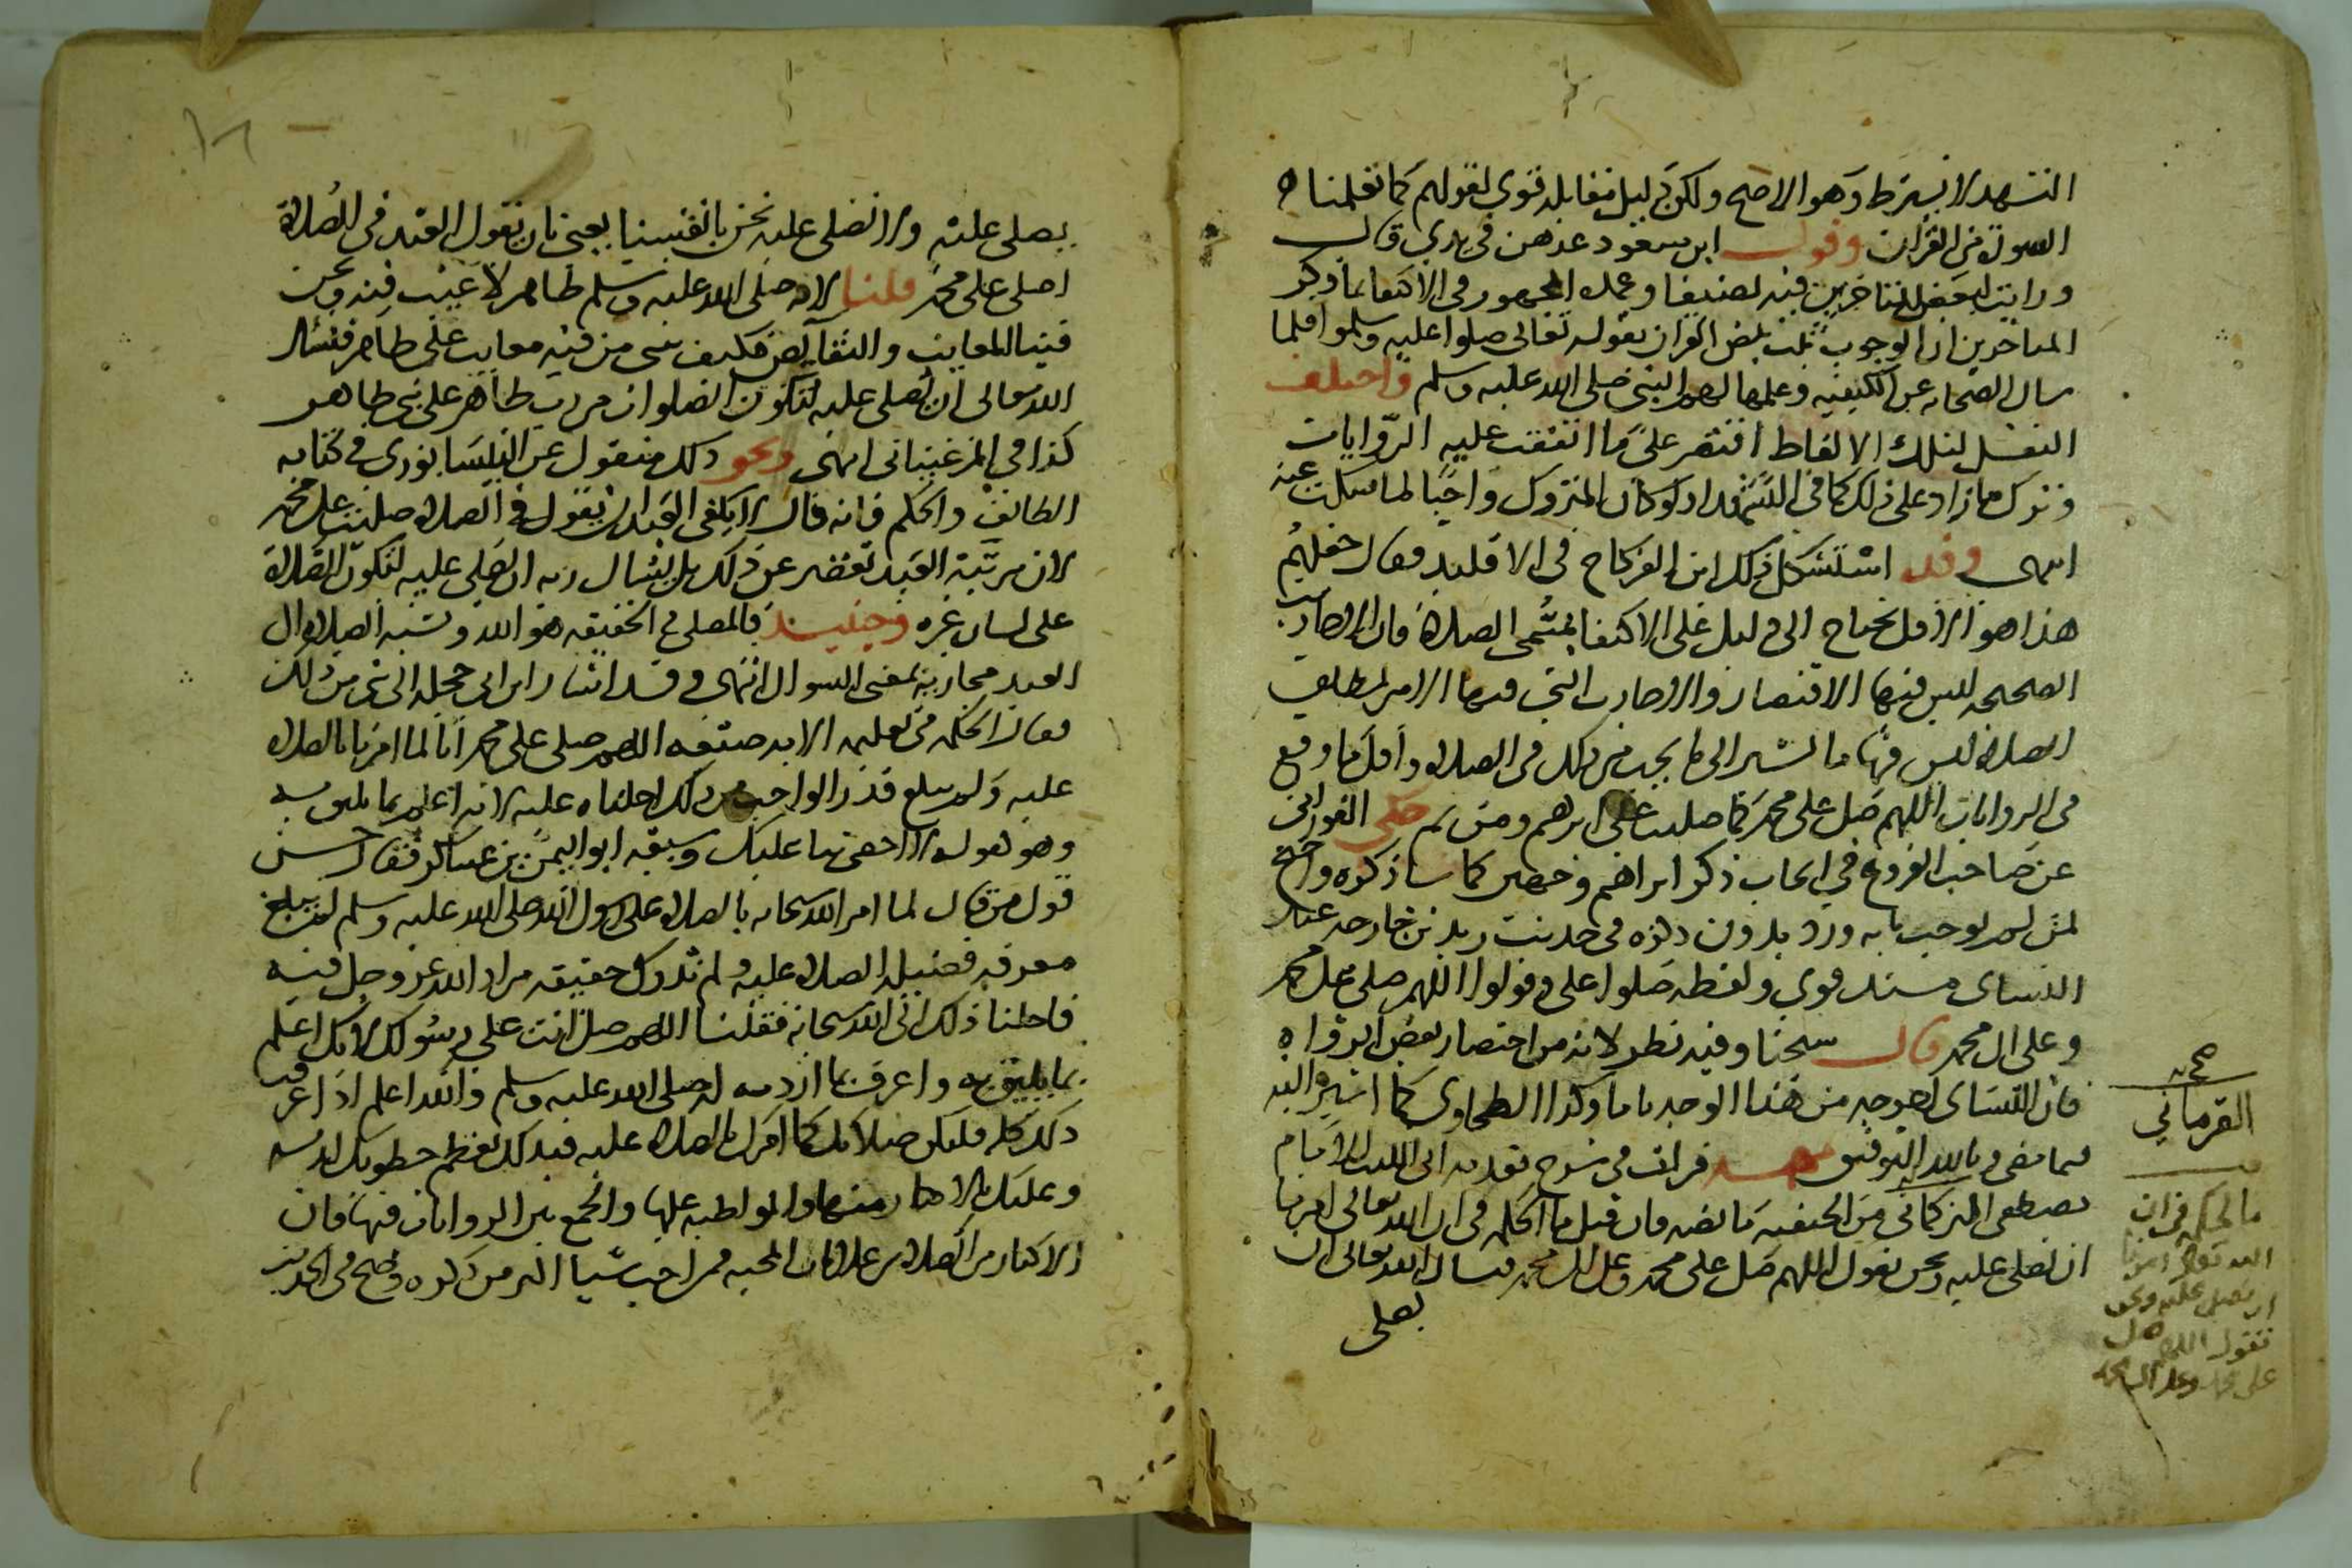 التشهد لا يشترط وهو الاصح ولكن دليل مقابله قوي لقولهم كما تعلمنا
السورة من القران وقول ابن مسعود عدهن في يدي قال
ورايت لبعض المتاخرين فيه تصنيفا وعمدة الجمهور في الاكتفا بما ذكر
المتاخرين ان الوجوب ثبت بنص القران بقوله تعالى صلوا عليه وسلموا فلما
سال الصحابه عن الكيفيه وعلمها لهم النبي صلى الله عليه وسلم واختلف
النقل لتلك الالفاظ اقتصر على ما اتفقت عليه الروايات
وترك ما زاد على ذلك كما في التشهد اذ لو كان المتروك واجبا لما سكت عنه
انتهى وقد استشكل ذلك ابن الفركاح في الاقليد فقال جعلهم
هذا هو الاقل يحتاج الى دليل على الاكتفا بمسمى الصلاة فان الاحاديث
الصحيحه ليس فيها الاقتصار والاحاديث التي فيها الامر بمطلق
الصلاة ليس فيها ما يشير الى ما يجب من ذلك في الصلاة واقل ما وقع
في الروايات اللهم صل على محمد كما صليت على ابرهيم ومن ثم حكى الفوراني
عن صاحب الفروع في ايجاب ذكر ابراهيم وجهين كما ساذكره واحتج
لمن لم يوجب بانه ورد بدون ذكره في حديث زيد بن خارجه عند
النساي بسند قوي ولفظه صلوا علي وقولوا اللهم صلى على محمد
وعلى ال محمد قال شيخنا وفيه نظر لانه من اختصار بعض الرواه
فان النساي اخرجه من هذا الوجه تاما وكذا الطحاوي كما اشير اليه
فيما مضى وبالله التوفيق قرات في شرح مقدمه ابي الليث للامام
مصطفى التركماني من الحنفيه ما نصه فان قيل ما الحكمه في ان الله تعالى امرنا
ان نصلي عليه ونحن نقول اللهم صل على محمد وعلى ال محمد فنسال الله تعالى ان
يصلي
صحابه
القرماني
ما الحكمه في ان
الله تعالى امرنا
ان نصلي عليه ونحن
نقول اللهم صل
على محمد وعلى ال محمد
يصلي عليه ولا نصلي عليه نحن بانفسنا يعني بان يقول العبد في الصلاة
اصلي على محمد قلنا لانه صلى الله عليه وسلم طاهر لا عيب فيه ونحن
فينا المعايب والنقايص فكيف يثني من فيه معايب على طاهر فنسال
الله تعالى ان يصلي عليه لتكون الصلوات من رب طاهر على نبي طاهر
كذا في المرغيناني انتهى ونحو ذلك منقول عن النيسابوري في كتابه
اللطائف والحكم فانه قال لا يكفي العبد ان يقول في الصلاة صليت على محمد
لان مرتبة العبد تقصر عن ذلك بل يسال ربه ان يصلي عليه لتكون الصلاة
على لسان غيره وحينيذ فالمصلي في الحقيقه هو الله ونسبه الصلاة الى
العبد مجازيه بمعنى السوال انتهى وقد اشار ابن ابي حجله الى شي من ذلك
فقال الحكمه في تعليمه الامه صيغه اللهم صلى على محمد انا لما امرنا بالصلاه
عليه ولم نبلغ قدر الواجب من ذلك احلناه عليه لانه اعلم بما يليق به
وهو كقوله لا احصي ثنا عليك وسبقه ابو اليمن بن عساكر فقال حسن
قول من قال لما امر الله سبحانه بالصلاه على رسول الله صلى الله عليه وسلم لم نبلغ
معرفه فضيلة الصلاه عليه ولم ندرك حقيقه مراد الله عز وجل فيه
فاحلنا ذلك الى الله سبحانه فقلنا اللهم صل انت على رسولك لانك اعلم
بما يليق به واعرف بما اردته له صلى الله عليه وسلم والله اعلم اذا عرفت
ذلك كله فلتكن صلاتك كما امرك بالصلاه عليه فبذلك تعظم حظوتك لديه
وعليك بالاكثار منها والمواظبه عليها والجمع بين الروايات فيها فان
الاكثار من الصلاه من علامات المحبه فمن احب شيا اكثر من ذكره وصح في الحديث